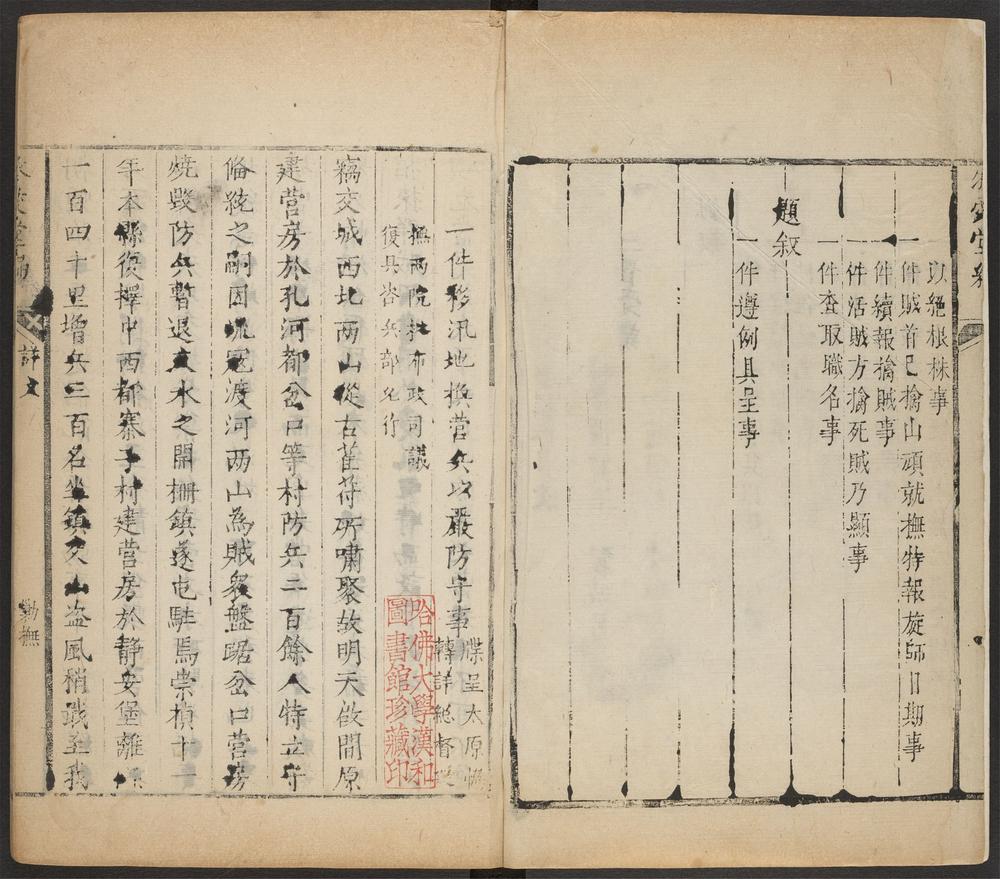 以絕根株事
一件賊首已擒山頑就撫特報旋師日期事
一件續報擒賊事
一件活賊方擒死賊乃顯事
一件查取職名事
題叙
一件遵例具呈事
一件移汛地換營兵以嚴防守事
牒呈太原
轉詳總督
撫两院批布政司議
復具咨兵部允行
哈佛大學漢和
圖書館珍藏印
竊交城西北两山從古萑苻所嘯聚故明天啟間原
建营房於孔河都岔口等村防兵二百餘人特立守
俻統之嗣因流冦渡河两山為賊眾盤踞岔口营房
燒毀防兵暫退文水之開柵鎮遂屯駐焉崇楨十一
年本縣復擇中西都寨子村建营房於静安堡離
一百四十里增兵三百名坐鎮交山盗風稍戢至我
詳文
勦撫